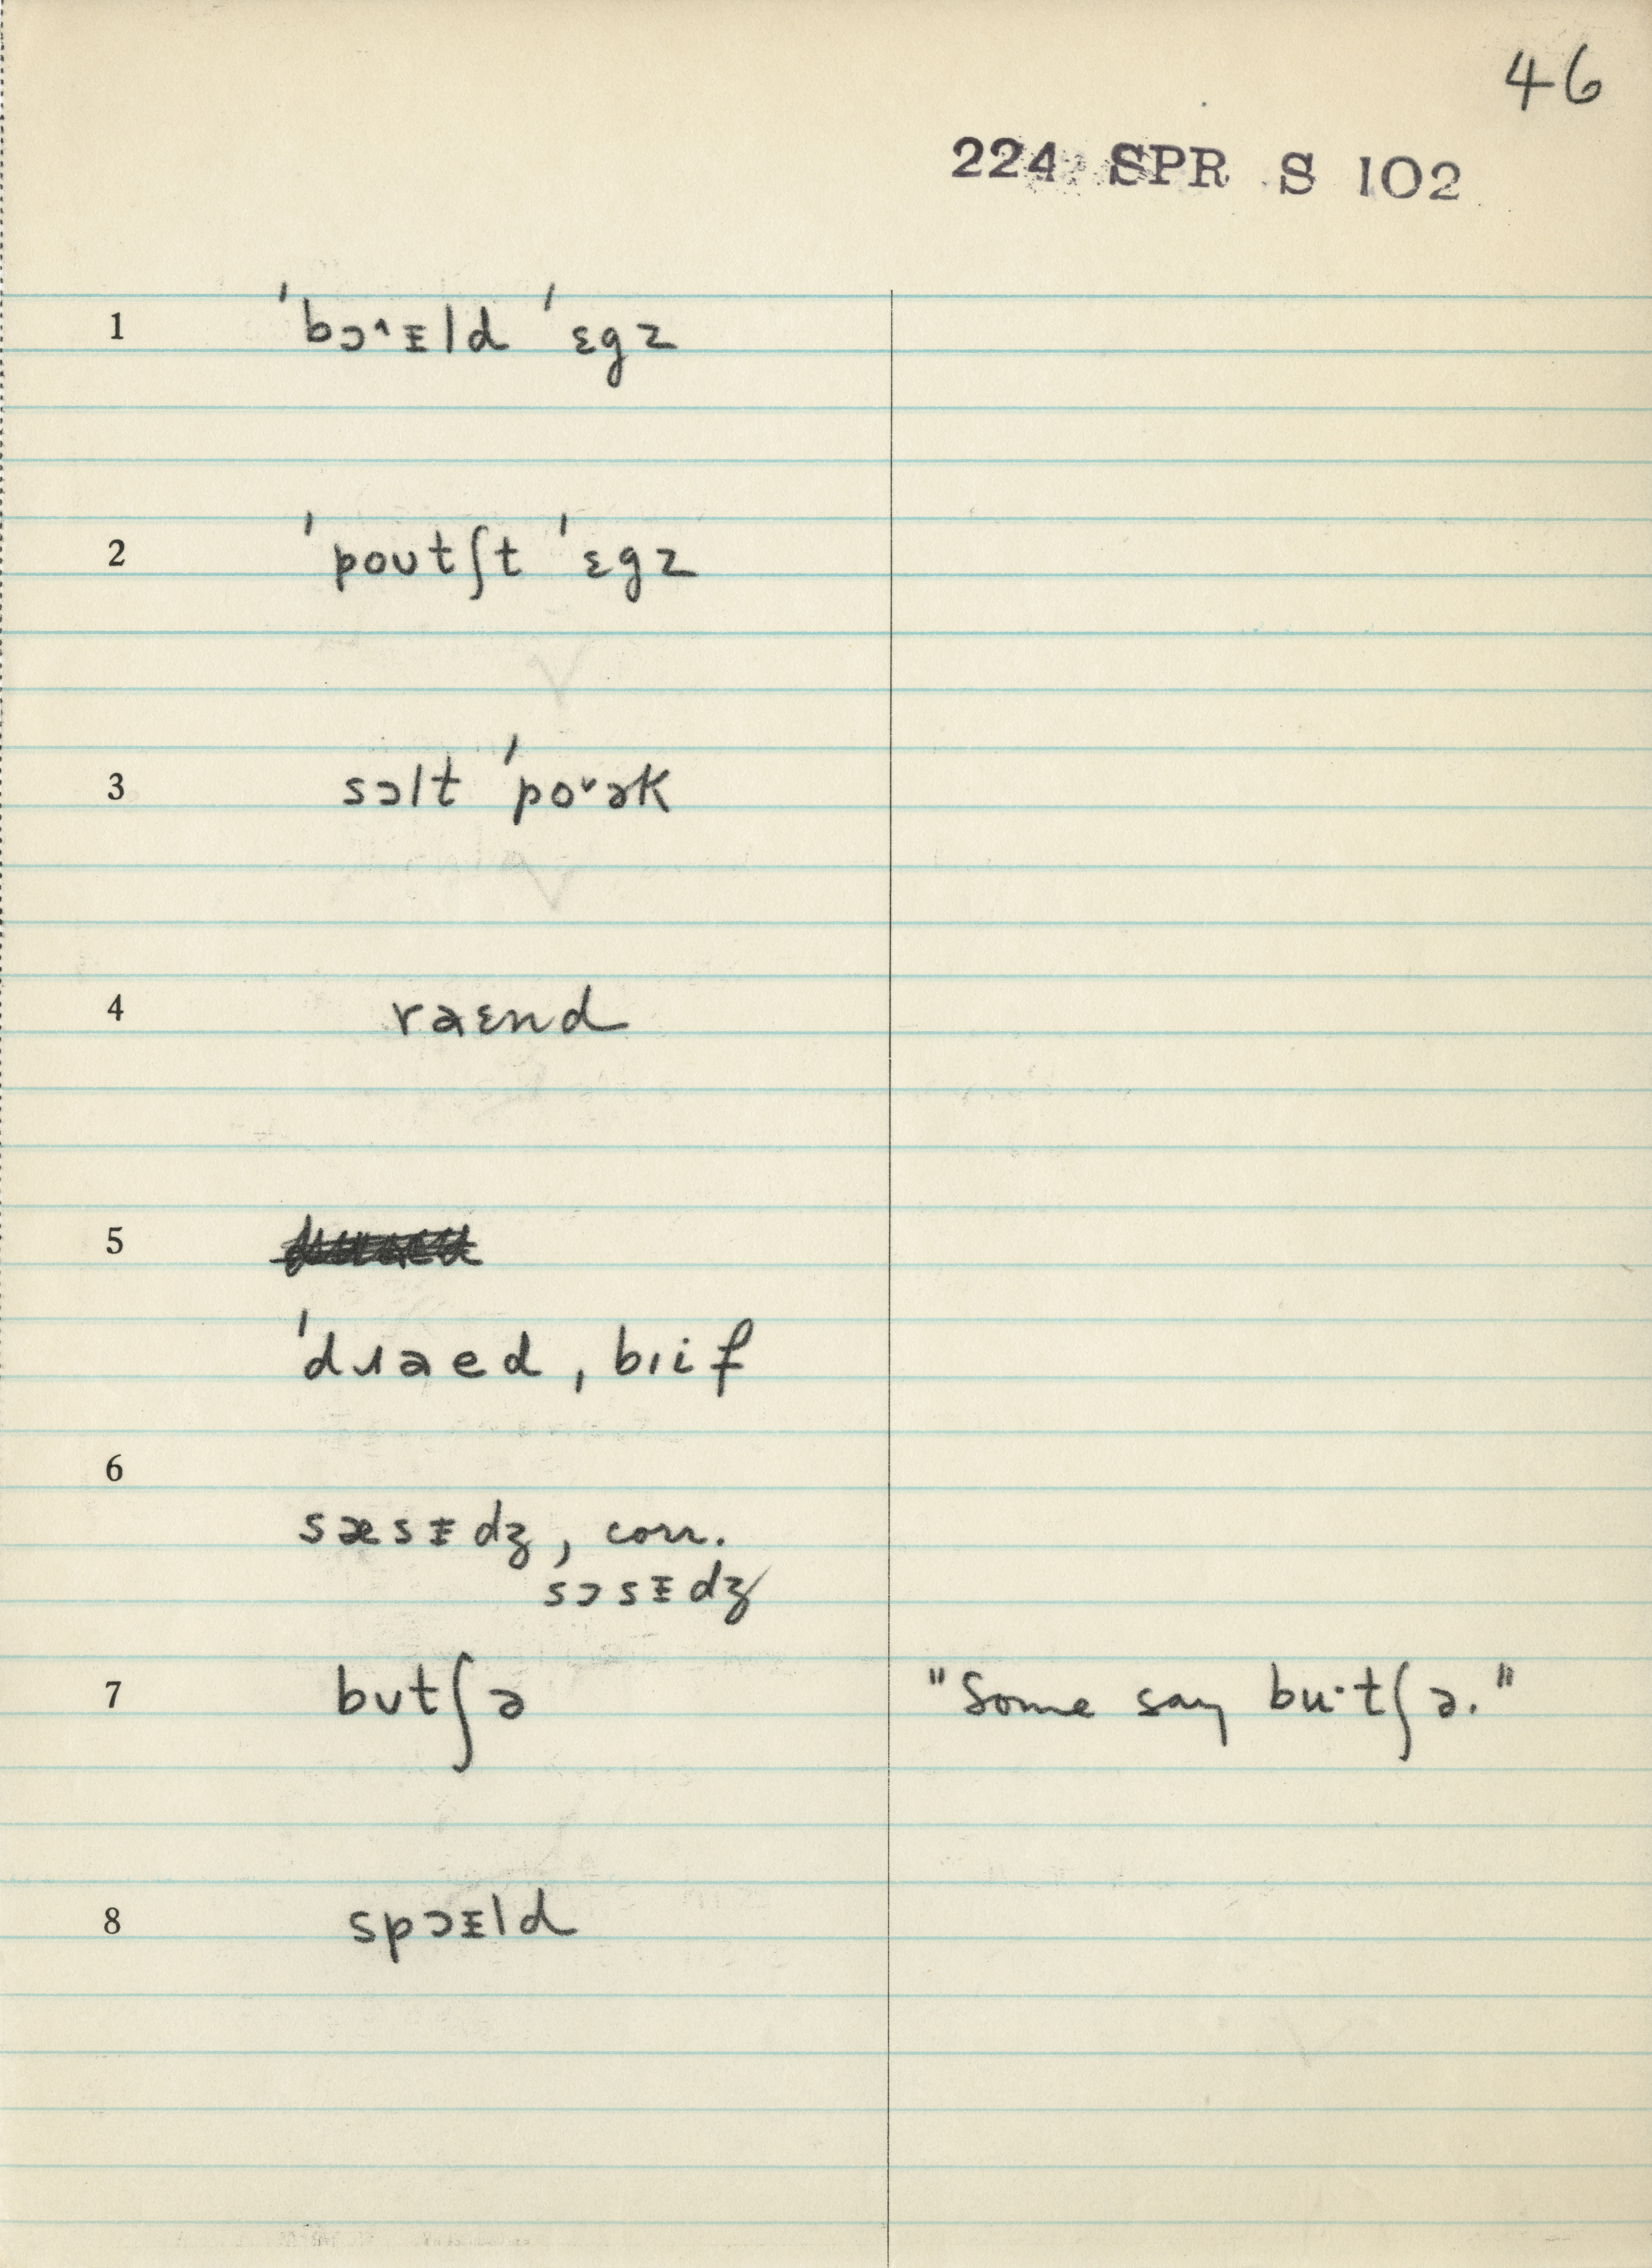 46
224 SPR S 102
1 ˈbɔ˄ᵻld ˈɛgz
2 ˈpoʊtʃt ˈɛgz
3 sɔlt ˈpo˅ək
4 raɛnd
5
ˈdɹaed, bɪif
6
sæsᵻdʒ, corr.
sɔsᵻdʒ
7 bʊtʃə "Some say bu·tʃə."
8 spɔᵻld